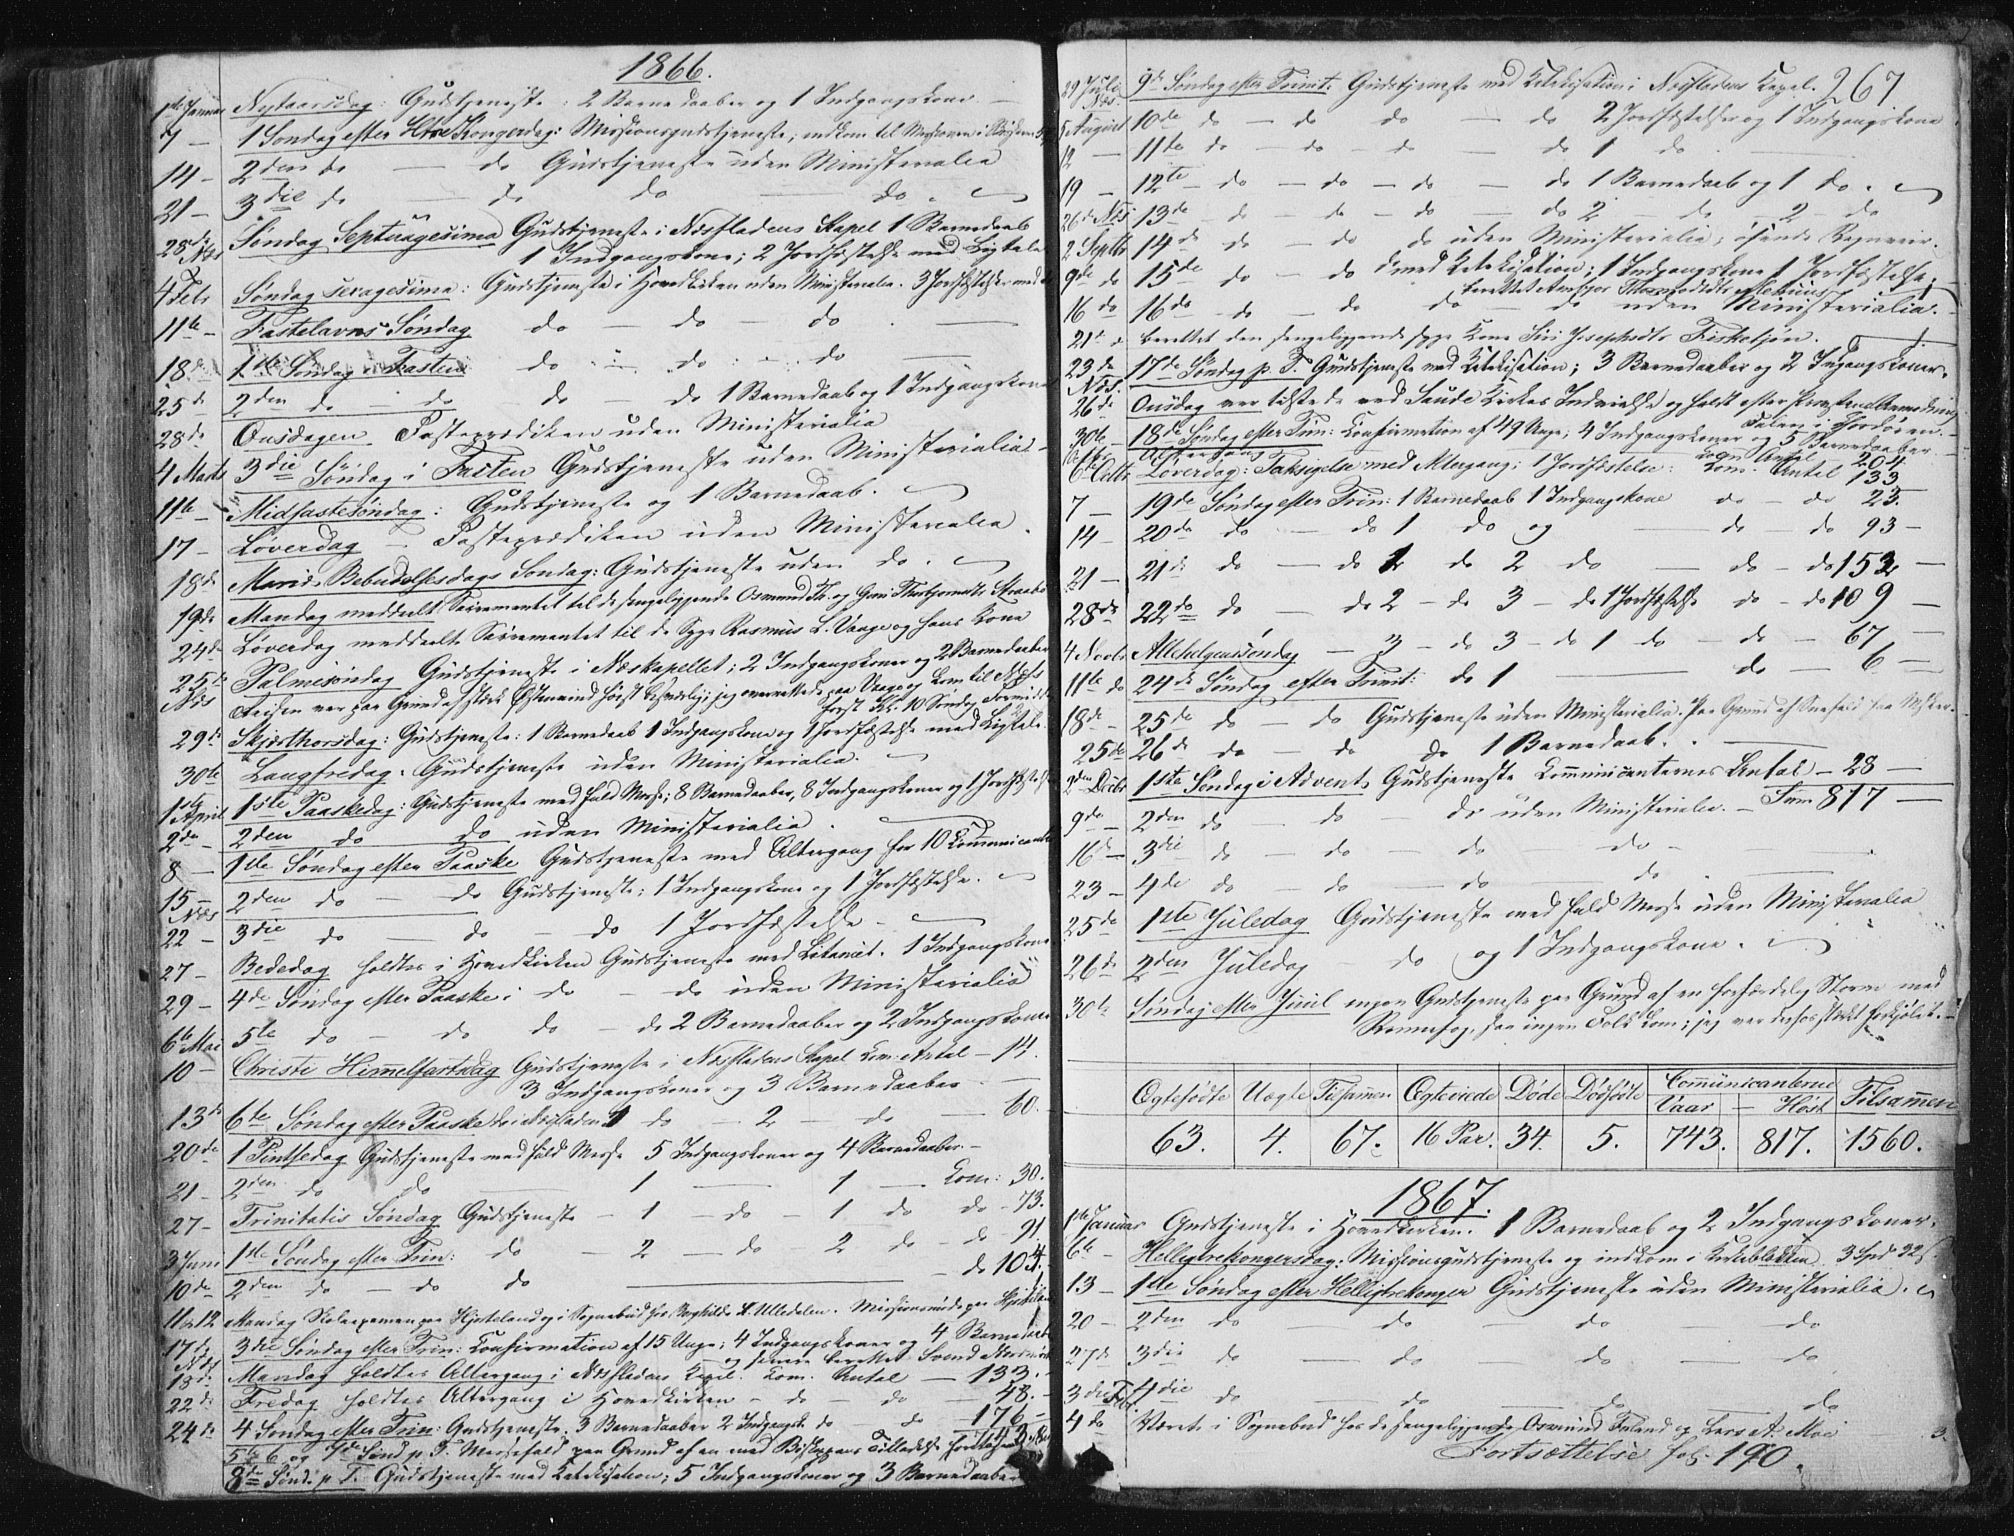 1866.
1ste Januar Nytaarsdag: Gudstjeneste: 2 Barnedaaber og 1 Indgangskone —
7 — 1 Søndag efter H. tre Kongerdag: Missionsgudstjeneste, indkom til Missionen i
14 — 2den do — do Gudstjeneste uden Ministerialia
21 — 3die do — do do — do.
28de Næs Søndag Septuagesima Gudstjeneste i Næsfladens Kapel 1 Barnedaab
1 Indgangskone; 2 Jordfæstelse med Ligtale
4 Febr Søndag sexagesima: Gudstjeneste i Hovedkirken uden Ministerialia. 3 Jordfæstelser med
11te — Fastelavns Søndag do — do — do
18de 1ste Søndag i Fasten do — do — do
25de 2den do do do — do 1 Barnedaab og 1 Indgangskone
28de Onsdagen Fasteprædiken uden Ministerialia
4 Marts 3die Søndag i Fasten Gudstjeneste uden Ministerialia —
11te — Midfastesøndag: Gudstjeneste og 1 Barnedaab.
17 — Løverdag — Fasteprædiken uden Ministerialia.
18de Mariæ Bebudelsesdags Søndag: Gudstjeneste uden do.
19de Mandag meddeelt Sacramentet til de sengeliggende Osmund Th. og Guri
24de Løverdag meddeelt Sacramentet til de Syge Rasmus L. Vaage og hans Kone
25de Næs Palmesøndag Gudstjeneste i Næskapellet; 2 Indgangskoner og 2 Barnedaaber
Reisen var paa Grund af stærk Østenvind høist besværlig; jeg overnattede paa Vaage og kom til Næs
først Kl. 10 Søndag Formiddag
29de Skjærthorsdag: Gudstjeneste: 1 Barnedaab 1 Indgangskone og 1 Jordfæstelse med Ligtale
30te Langfredag. Gudstjeneste uden Ministerialia.
1ste April 1ste Paaskedag: Gudstjeneste med fuld Messe; 8 Barnedaaber, 8 Indgangskoner og 1 Jordfæstelse
2den — 2den do do uden Ministerialia.
8 — 1ste Søndag efter Paaske Gudstjeneste med Altergang for 10 Communicanter
15 — Næs 2den do — do Gudstjeneste; 1 Indgangskone og 1 Jordfæstelse.
22 — 3die do — do — do 1 Jordfæstelse
27 — Bededag holdtes i Hovedkirken Gudstjeneste med Litaniet. 1 Indgangskone
29 — 4de Søndag efter Paaske: do — do uden Ministerialia
6te Mai 5te do — do do — do 2 Barnedaaber og 2 Indgangskoner
10 — Christi Himmelfartsdag Gudstjeneste i Næsfladens Kapel Com: Antal — 14.
3 Indgangskoner og 3 Barnedaaber —
13de 6te Søndag efter Paaske do i Næsfladen 1 do — 2 — do — 60.
20de 1 Pintsedag Gudstjeneste med fuld Messe 5 Indgangskoner og 4 Barnedaaber. —
21 — 2den do do — 1 — 1 — Com: 30.
27 — Trinitatis Søndag Gudstjeneste — 1 — do — 1 do do — 73.
3 Juni 1ste Søndag efter Trin: do — 2 — do 2 do — do 91
10de 2den do — do do — do 104.
11 & 12 Mandag Skoleexamen paa Hjorteland og i Sognebud hos Ulledalen. Missionsmøde paa
17de Næs 3die Søndag efter Trin: Confirmation af 15 Unge; 4 Indgangskoner og 4 Barnedaab
og senere berettet Svend
18de Mandag holdtes Altergang i Næsfladens Kapel. Com. Antal — 133.
22de Fredag holdtes Altergang i Hovedkirken — do — do — 48.
24de 4 Søndag efter Trin: Gudstjeneste; 3 Barnedaaber 2 Indgangsk. do do — 176 —
5te 6 og 7de Sønd p. T. Messefald paa Grund af en med Biskoppens Tilladelse 743
8de Sønd. p. T. Gudstjeneste med Katekisation; 5 Indgangskoner og 3 Barnedaaber
267
29 Juli Næs 9de Søndag efter Trinit. Gudstjeneste med Katekisation i Næsfladens Kapel.
5 August 10de do — do do — do 2 Jordfæstelser og 1 Indgangskone
12 — 11te do — do — do — do 1 do
19 — 12te — do — do — do — do 1 Barnedaab og 1 do.
26de Næs 13de — do — do — do — do 2 do 2 do
2 Septbr 14de do — do do uden Ministerialia; øsende Regnveir.
9de do 15de do — do do med Katekisation; 1 Indgangskone 1 Jordfæstelse;
berettet
16 do 16de — do — do do — do uden Ministerialia.
21de do berettet den sengeliggende syge Kone Siri Josephsdtr Fisketjøn.
23de Næs. 17de Søndag p. T. Gudstjeneste med Katekisation; 3 Barnedaaber og 2 Ingangskoner.
26de Onsdag var tilstede ved Saude Kirkes Indvielse og holdt efter Provstens Anmodning
Talen i Chordøren —
30te 18de Søndag efter Trin: Confirmation af 49 Unge; 4 Indgangskoner og 5 Barnedaaber.
Altergang Com Antal 204
6te Octbr Løverdag: Taksigelse med Altergang; 1 Jordfæstelse: Com. Antal 133
7 — 19de Søndag efter Trin: 1 Barnedaab 1 Indgangskone do — do 23.
14 — 20de do — do 1 do og — do — do 93 —
21 — 21de do — do 1 do 2 do — do — do 152 —
28de 22de do — do 2 — do 3 — do 1 Jordfæstelse do — do 109 —
4 Novbr Allehelgenssøndag — 3 — do 3 — do 1 do — do — 67 —
11te do 24de Søndag efter Trinit: do 1 — do — 6 —
18de — 25de do — do Gudstjeneste uden Ministerialia. Paa Grund af Snefald
25de 26de do — do do 1 Barnedaab.
2den Decbr 1ste Søndag i Advent Gudstjeneste Communicanternes Antal — 28 —
Sum 817 —
9de — 2den do — do — do uden Ministerialia. —
16de — 3die do — do — do do —
23 — 4de do — do — do do.
25de 1ste Juledag Gudstjeneste med fuld Messe uden Ministerialia
26de 2den Juledag do og 1 Indgangskone.
30te Søndag efter Juul ingen Gudstjeneste paa Grund af en forfærdelig Storm med
Rennefog, saa ingen Folk kom; jeg var derhos stærkt forkjølet. —
Ægtefødte Uægte Tilsammen Ægteviede Døde Dødfødte Communicanterne Tilsammen
Vaar — Høst
63. 4. 67. 16 Par. 34. 5. 743. 817. 1560.
1867.
1ste Januar Gudstjeneste i Hovedkirken. 1 Barnedaab og 2 Indgangskoner.
6te — Helligtrekongersdag: Missionsgudstjeneste og indkom i Kirkeblokken 3 Spd 32
13 — 1ste Søndag efter Helligtrekonger Gudstjeneste uden Ministerialia.
20 — 2den do — do — do — do
27de 3die do — do — do — do
3die Febr 4die do — do — do — do
4de Været i Sognebud hos de sengeliggende Osmund Foland og Lars A. Moe
Fortsættelse fol: 190.